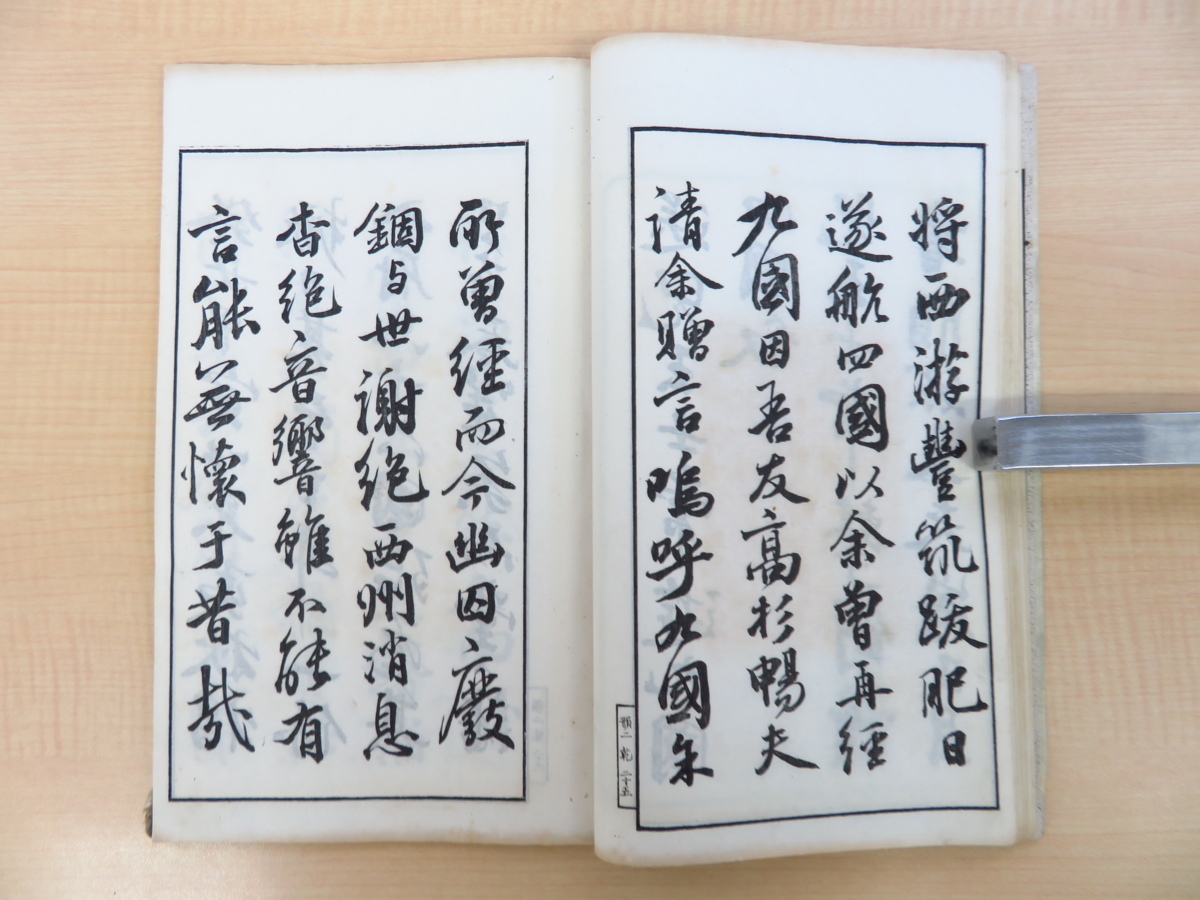 将西游豐筑跋肥日
遂航四國以余曾再經
九國因吾友高杉暢夫
請余贈言嗚呼九國余
顋二 乾 二十五
所曾經而今幽囚廢
錮与世謝絶西州消息
杳絶音響雖不能有
言能無懷于昔哉